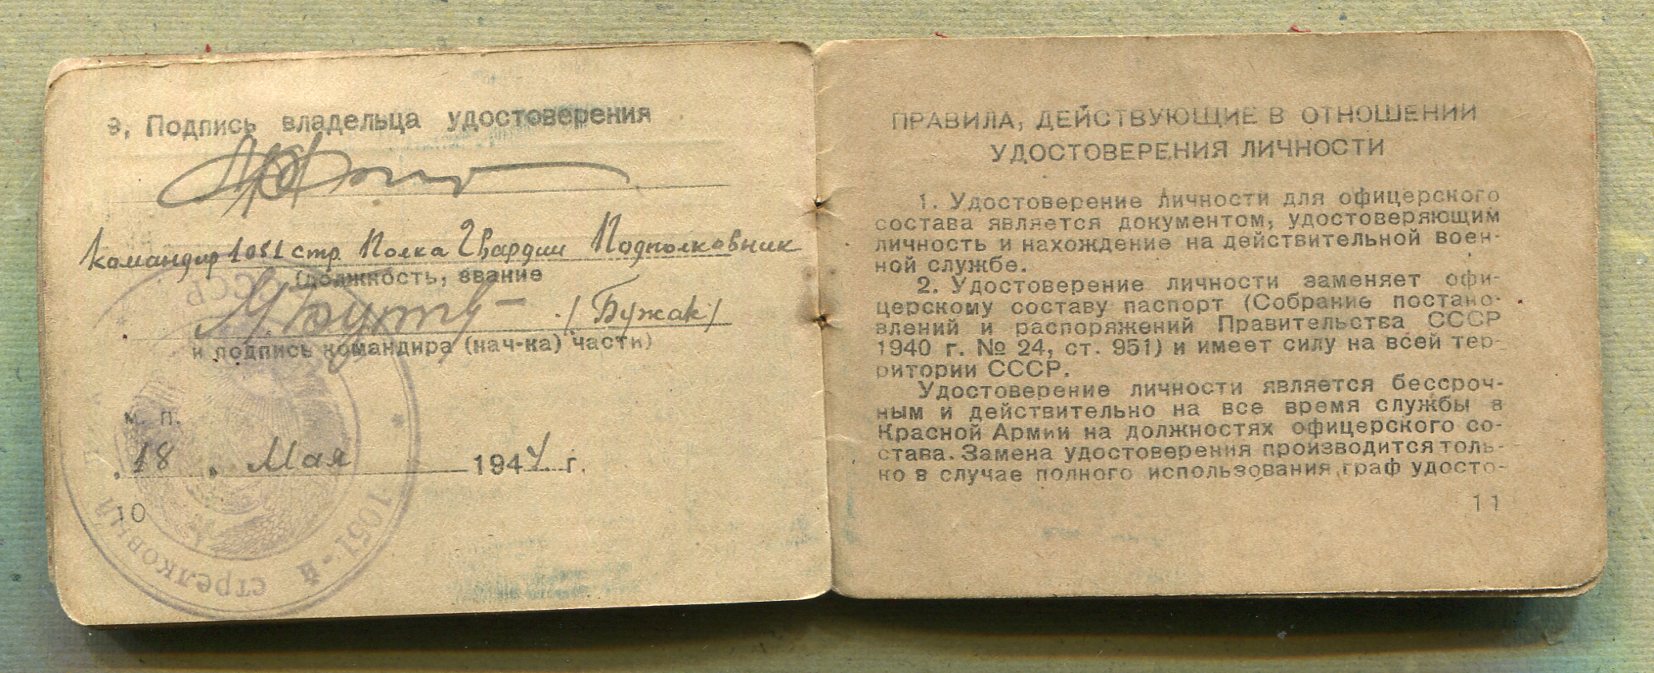 9. Подпись владельца удостоверения
Командир 1051 стр. Полка Гвардии Подполковник
(должность, звание
/Бужак/
и подпись командира (нач-ка) части)
м. п.
18 „ Мая 1944 г.
10
СССР
* 1051-й стрелковый
ПРАВИЛА, ДЕЙСТВУЮЩИЕ В ОТНОШЕНИИ
УДОСТОВЕРЕНИЯ ЛИЧНОСТИ
1. Удостоверение личности для офицерского
состава является документом, удостоверяющим
личность и нахождение на действительной воен-
ной службе.
2. Удостоверение личности заменяет офи-
церскому составу паспорт (Собрание постано-
влений и распоряжений Правительства СССР
1940 г. № 24, ст. 951) и имеет силу на всей тер-
ритории СССР.
Удостоверение личности является бессроч-
ным и действительно на все время службы в
Красной Армии на должностях офицерского со-
става. Замена удостоверения производится толь-
ко в случае полного использования граф удосто-
11